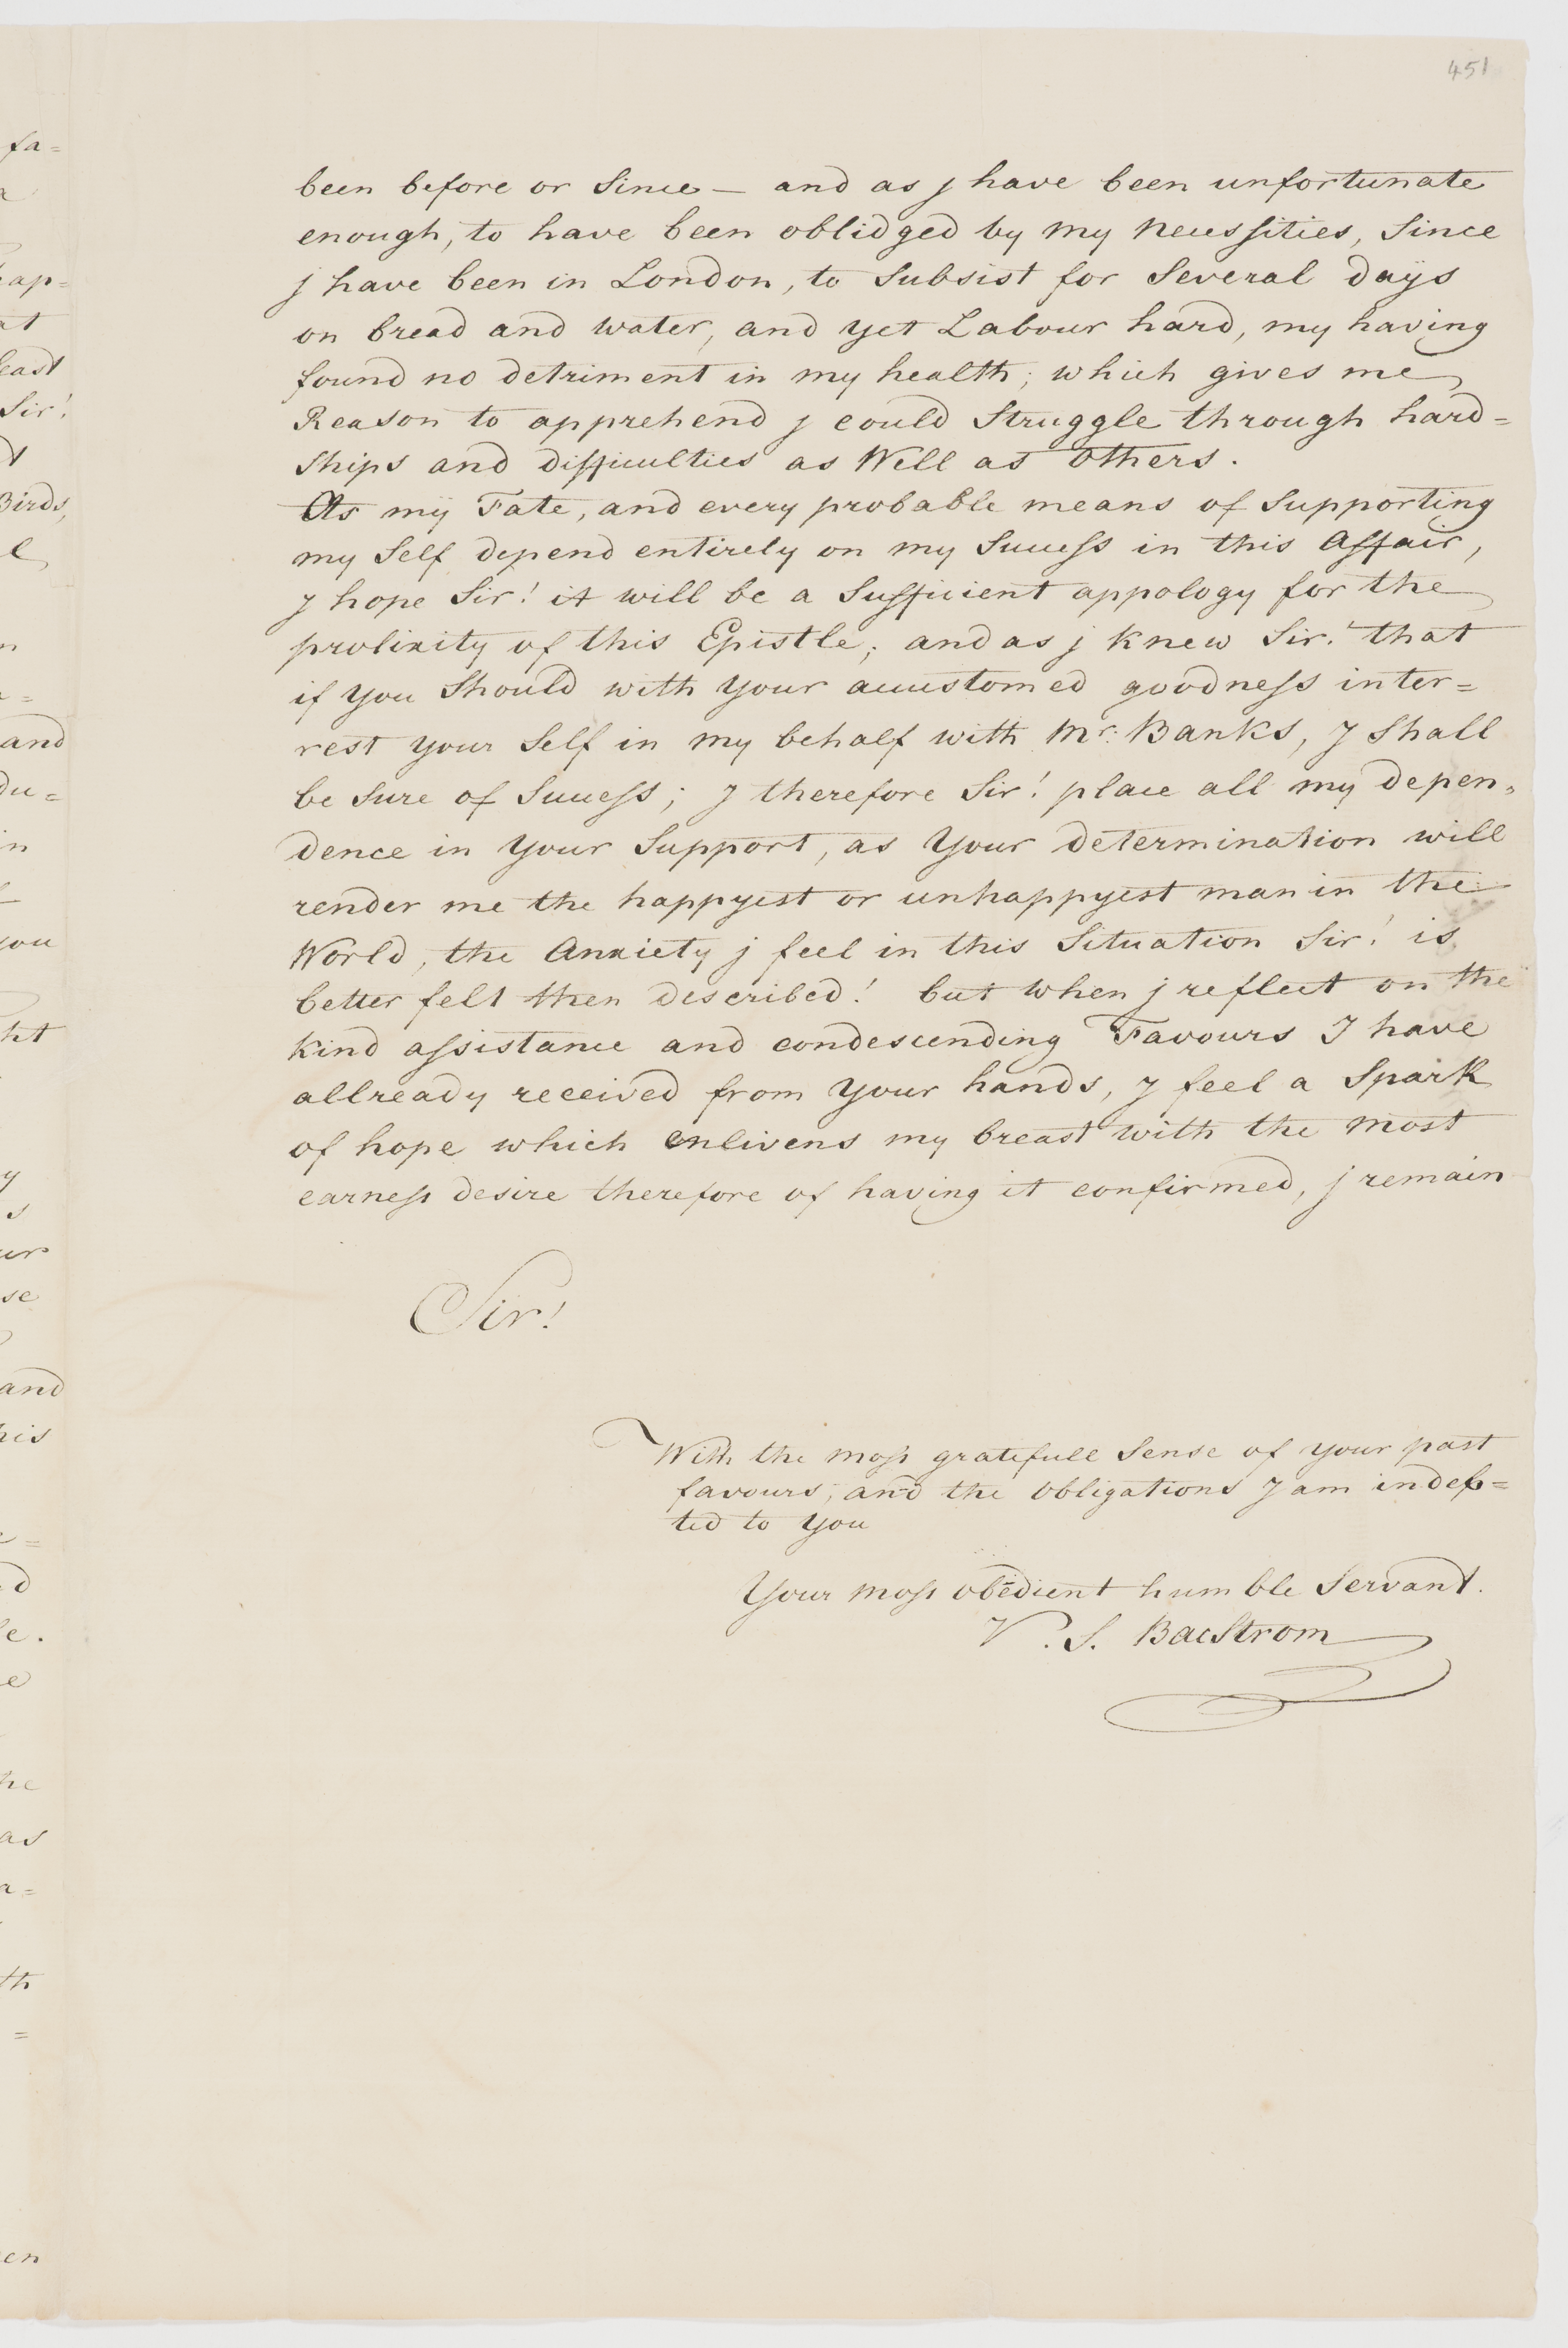 451
been before or Since — and as j have been unfortunate
enough, to have been oblidged by my Necessities, Since
j have been in London, to Subsist for Several days
on bread and water, and yet Labour hard, my having
found no detriment in my health; which gives me
Reason to apprehend j could Struggle through hard=
Ships and difficulties as Well as others.
As my Fate, and every probable means of Supporting
my Self depend entirely on my Success in this Affair,
J hope Sir! it will be a Sufficient appology for the
prolixity of this Epistle; and as j Knew Sir! that
if you Should with your accustomed goodness inter=
rest your Self in my behalf with Mr. Banks, J Shall
be Sure of Success; J therefore Sir! place all my depen=
dence in your Support, as Your determination will
render me the happyest or unhappyest man in the
World, the Anxiety j feel in this Situation Sir! is
better felt then described! but when j reflect on the
Kind assistance and condescending Favours I have
allready received from your hands, J feel a Spark
of hope which enlivens my breast with the most
earness desire therefore of having it confirmed, j remain
Sir!
With the most gratefull Sense of your past
favours, and the obligations J am indeb=
ted to you
Your most obedient humble Servant.
V. S. BacStrom
fa=
ap=
east
Sir!
Birds,
and
du=
in
you
and
his
as
th